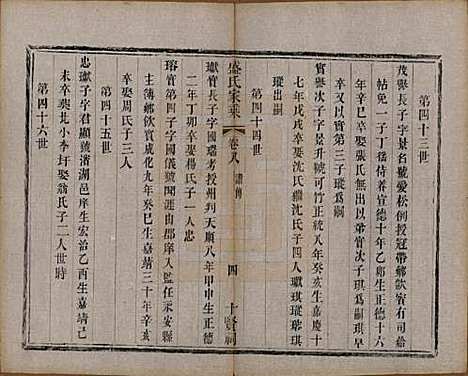 第四十三世
茂譽長子字景名號愛松例授冠帶鄉飲賓有司給
帖免一子丁徭侍養宣德十年乙卯生正德十六
年辛巳卒娶張氏無出以弟實次子琪為嗣琪早
卒又以實第三子瑽為嗣
實譽次子字克可竹正統八年癸亥生嘉慶十
七年戊戌卒娶沈氏繼沈氏子四人瓛琪瑽琭琪
瑽出嗣
第四十四世
盛氏家乘
卷八
譜傳
四
十賢祠
瓛實長子字國瑞考授州判天順八年甲申生正德
二年丁卯卒娶楊氏子一人忠
瑢實第四子字國儀號南山由郡庠入監任永安縣
主簿鄉飲賓成化九年癸巳生嘉靖三十年辛亥
卒娶周氏子三人
第四十五世
忠瓛子字君顯號濱湖邑庠生宏治乙酉生嘉靖己
未卒葬北小李圩娶翁氏子二人世時
第四十六世